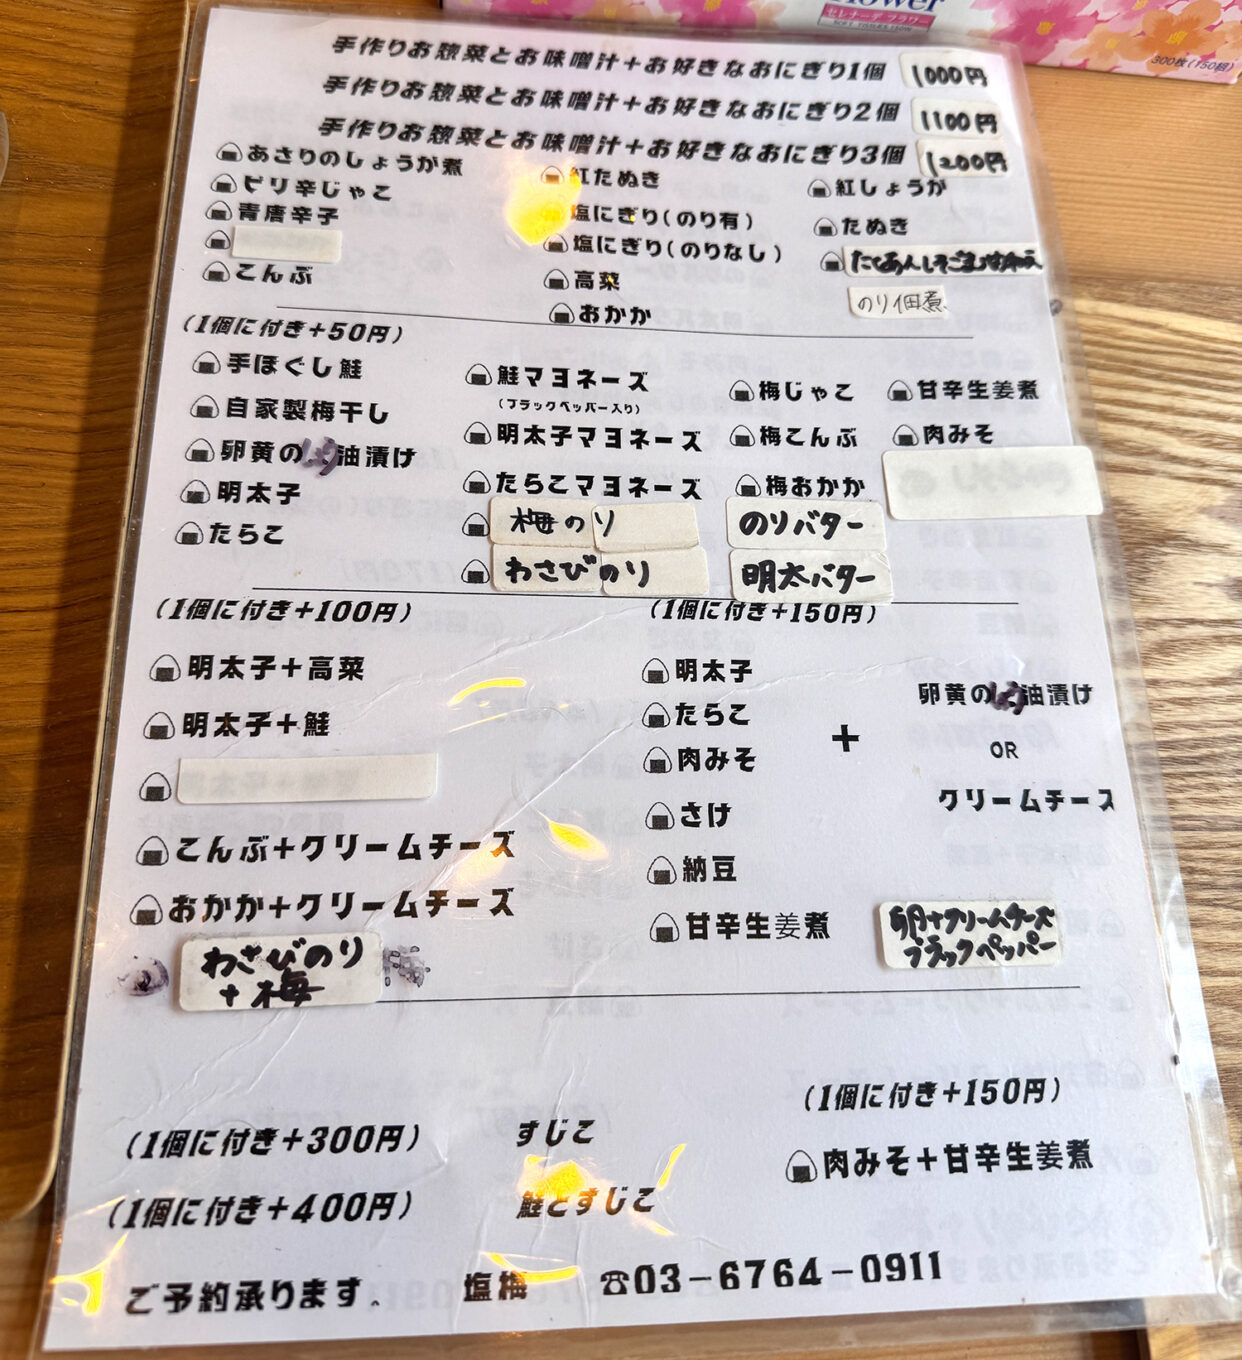 Flower
セレナーデ フラワー
300枚(150組)
手作りお惣菜とお味噌汁＋お好きなおにぎり1個 1000円
手作りお惣菜とお味噌汁＋お好きなおにぎり2個 1100円
手作りお惣菜とお味噌汁＋お好きなおにぎり3個 1200円
あさりのしょうが煮
ピリ辛じゃこ
青唐辛子
こんぶ
紅たぬき
塩にぎり(のり有)
塩にぎり(のりなし)
高菜
おかか
紅しょうが
たぬき
のり佃煮
(1個に付き＋50円)
手ほぐし鮭
自家製梅干し
卵黄の油漬け
明太子
たらこ
鮭マヨネーズ
(ブラックペッパー入り)
明太子マヨネーズ
たらこマヨネーズ
梅のり
わさびのり
梅じゃこ
梅こんぶ
梅おかか
のりバター
明太バター
甘辛生姜煮
肉みそ
(1個に付き＋100円)
明太子＋高菜
明太子＋鮭
こんぶ＋クリームチーズ
おかか＋クリームチーズ
わさびのり
＋梅
(1個に付き＋150円)
明太子
たらこ
肉みそ
さけ
納豆
甘辛生姜煮
＋
卵黄の油漬け
OR
クリームチーズ
卵＋クリームチーズ
ブラックペッパー
(1個に付き＋300円) すじこ
(1個に付き＋400円) 鮭とすじこ
(1個に付き＋150円)
肉みそ＋甘辛生姜煮
ご予約承ります、 塩梅 ☎03－6764－0911